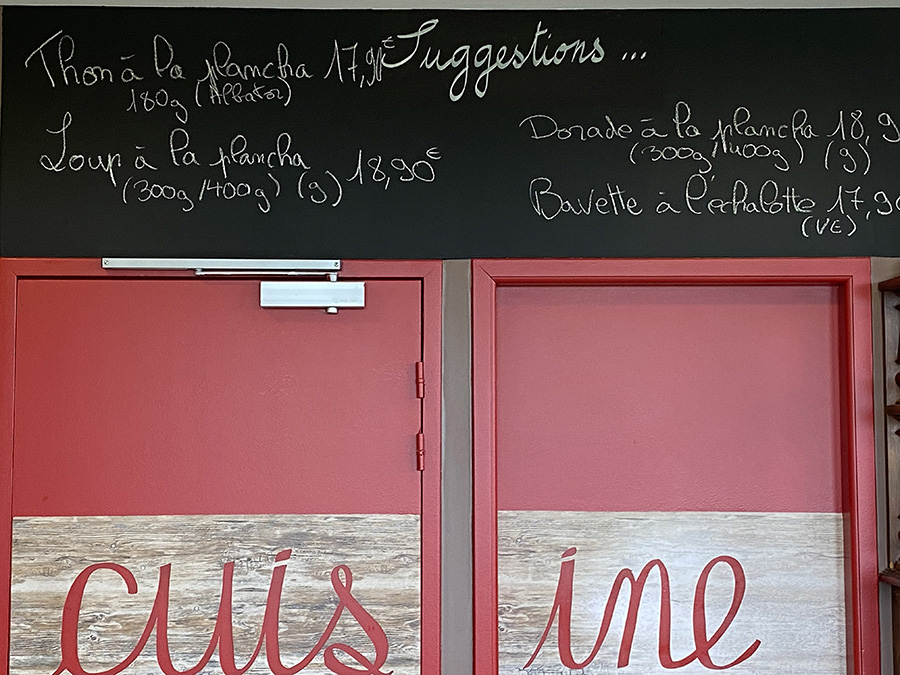 Suggestions ...
Thon à la plancha 17,90€
180g (Albator)
Loup à la plancha 18,90€
(300g/400g) (g)
Dorade à la plancha 18,9
(300g/400g) (g)
Bavette à l'échalotte 17,90
(VE)
cuisine